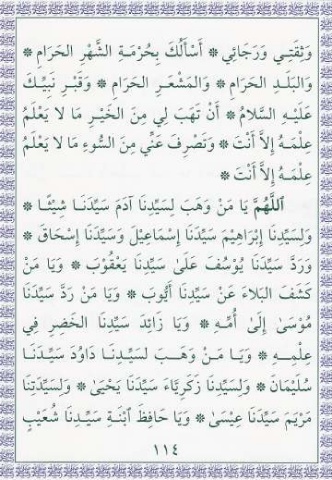 وَثِقَتِي وَرَجَائِي * أَسْأَلُكَ بِحُرْمَةِ الشَّهْرِ الحَرَامِ *
وَالبَلَدِ الحَرَامِ * وَالمَشْعَرِ الحَرَامِ * وَقَبْرِ نَبِيِّكَ
عَلَيْهِ السَّلَامُ * أَنْ تَهَبَ لِي مِنَ الخَيْرِ مَا لَا يَعْلَمُ
عِلْمَهُ إِلَّا أَنْتَ * وَتَصْرِفَ عَنِّي مِنَ السُّوءِ مَا لَا يَعْلَمُ
عِلْمَهُ إِلَّا أَنْتَ *
اَللَّهُمَّ يَا مَنْ وَهَبَ لِسَيِّدِنَا آدَمَ سَيِّدَنَا شِيْثًا *
وَلِسَيِّدِنَا إِبْرَاهِيْمَ سَيِّدَنَا إِسْمَاعِيْلَ وَسَيِّدَنَا إِسْحَاقَ *
وَرَدَّ سَيِّدَنَا يُوْسُفَ عَلَى سَيِّدِنَا يَعْقُوْبَ * وَيَا مَنْ
كَشَفَ البَلَاءَ عَنْ سَيِّدِنَا أَيُّوبَ * وَيَا مَنْ رَدَّ سَيِّدَنَا
مُوْسَىٰ إِلَىٰ أُمِّهِ * وَيَا زَائِدَ سَيِّدِنَا الخَضِرِ فِي
عِلْمِهِ * وَيَا مَنْ وَهَبَ لِسَيِّدِنَا دَاوُدَ سَيِّدَنَا
سُلَيْمَانَ * وَلِسَيِّدِنَا زَكَرِيَّاءَ سَيِّدَنَا يَحْيَىٰ * وَلِسَيِّدَتِنَا
مَرْيَمَ سَيِّدَنَا عِيْسَىٰ * وَيَا حَافِظَ ٱبْنَةِ سَيِّدِنَا شُعَيْبٍ
١١٤